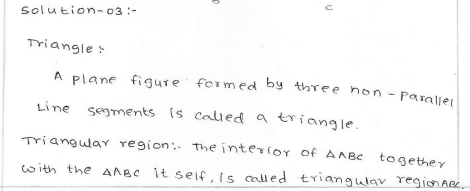 c
Solution-03:-
Triangle:
A plane figure formed by three non-Parallel
Line segments is called a triangle.
Triangular region:- The interior of ΔABC together
with the ΔABC it self, is called triangular region ABC.